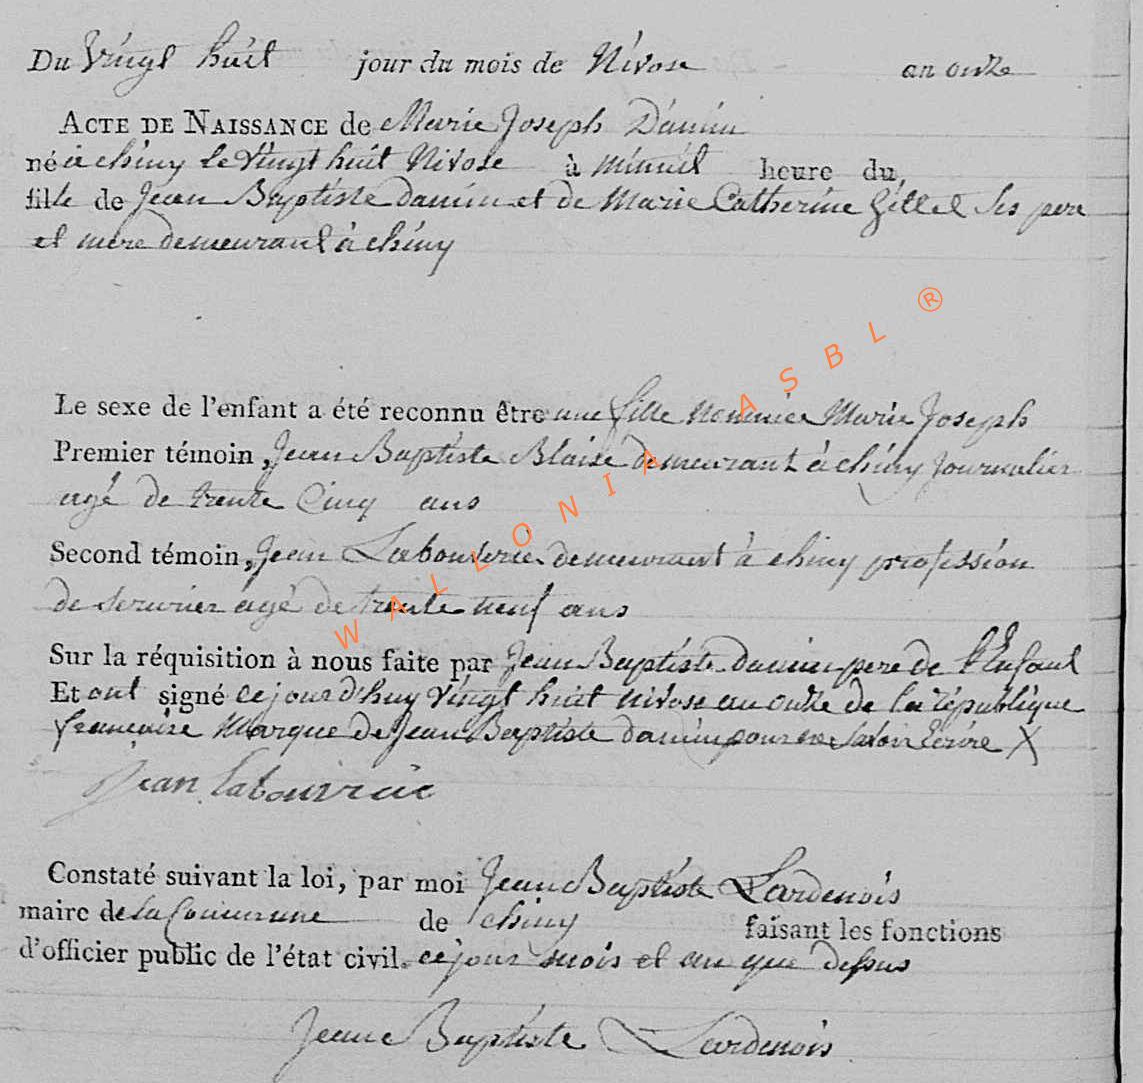 Du Vingt huit jour du mois de Nivose an onze
ACTE DE NAISSANCE de Marie Joseph Damin
né à chiny le Vingt huit Nivose à minuit heure du
fille de Jean Baptiste damin et de Marie Catherine Gillet ses pere
et mere demeurant à chiny
Le sexe de l'enfant a été reconnu être une fille nommée Marie Joseph
Premier témoin, Jean Baptiste Blaise demeurant à chiny journalier
agé de trente Cinq ans
Second témoin, Jean Labouverie demeurant à chiny profession
de serurier agé de trente neuf ans
Sur la réquisition à nous faite par Jean Baptiste damin pere de l'Enfant
Et ont signé ce jourd'huy vingt huit nivose an onze de la république
francaise Marque de Jean Baptiste damin pour ne savoir Ecrire X
Jean labouvrie
Constaté suivant la loi, par moi Jean Baptiste Lardenois
maire de la Commune de chiny faisant les fonctions
d'officier public de l'état civil. ce jour mois et an que dessus
Jean Baptiste Lardenois
WALLONIA ASBL ®